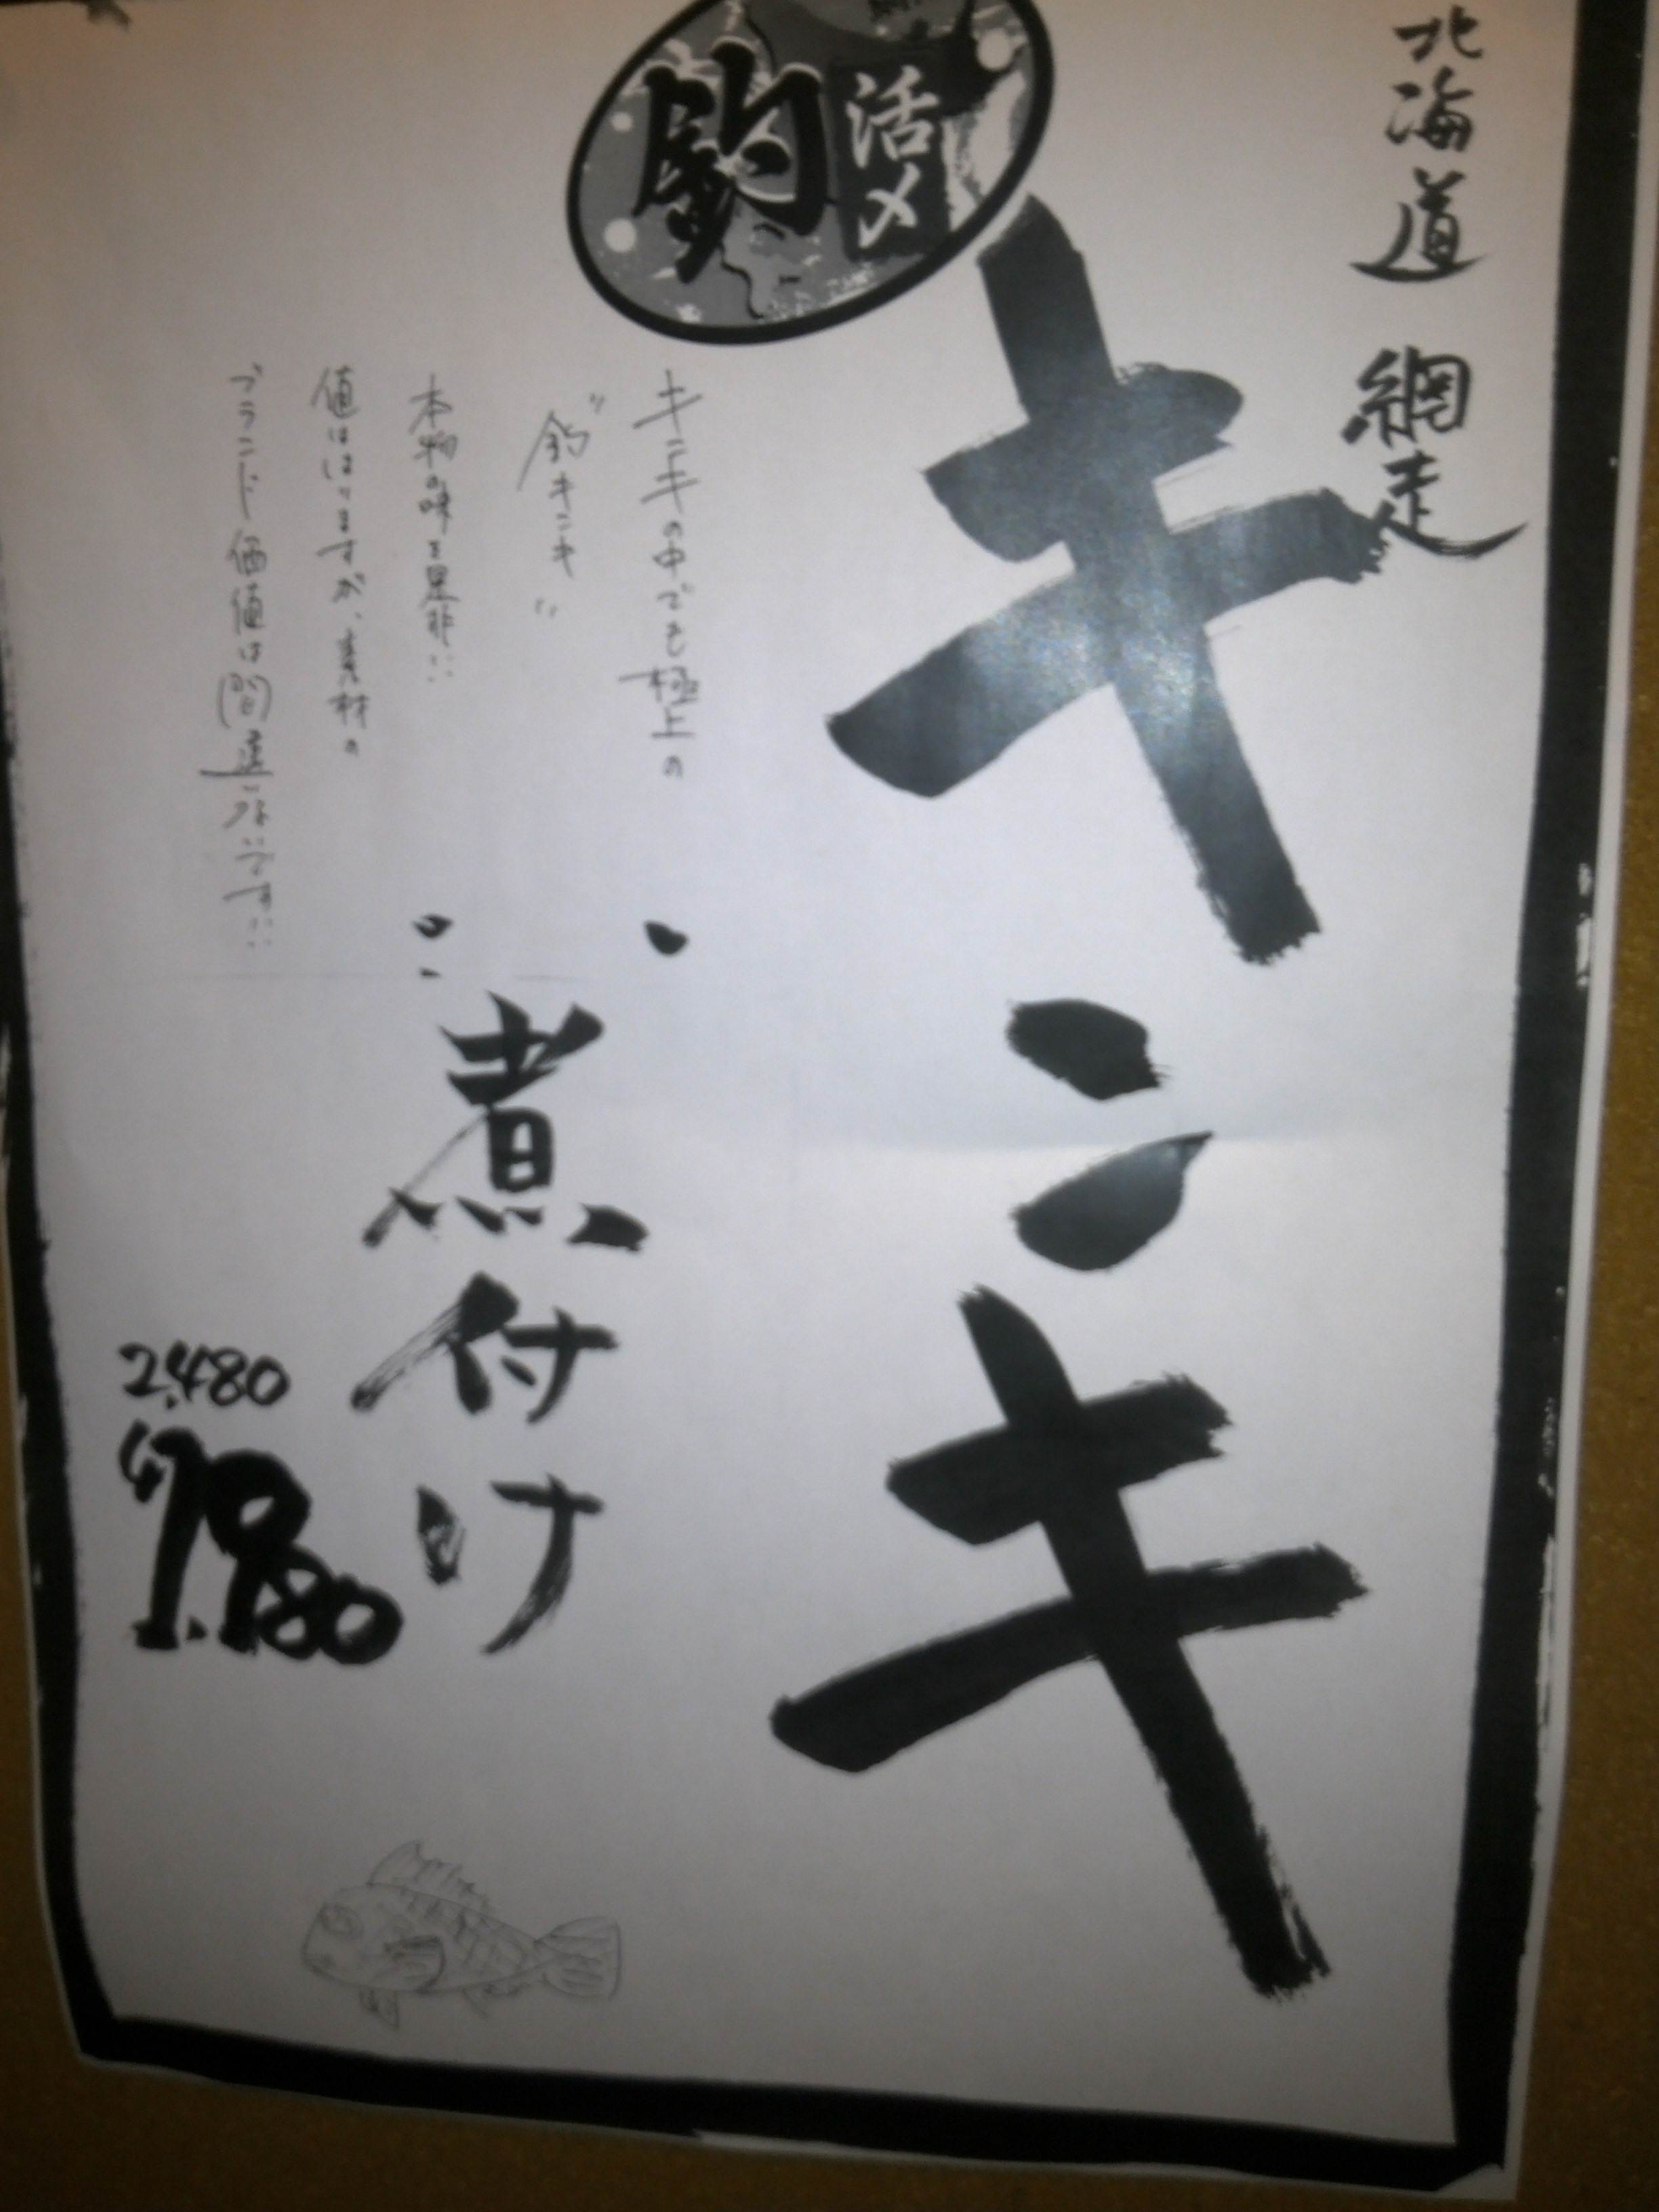 北海道 網走
キンキ
活〆
釣
キンキの中でも極上の
"釣キンキ"
本物の味を是非!!
値ははりますが、素材の
ブランド価値は間違いないです!!
・煮付け
2,480
1,980